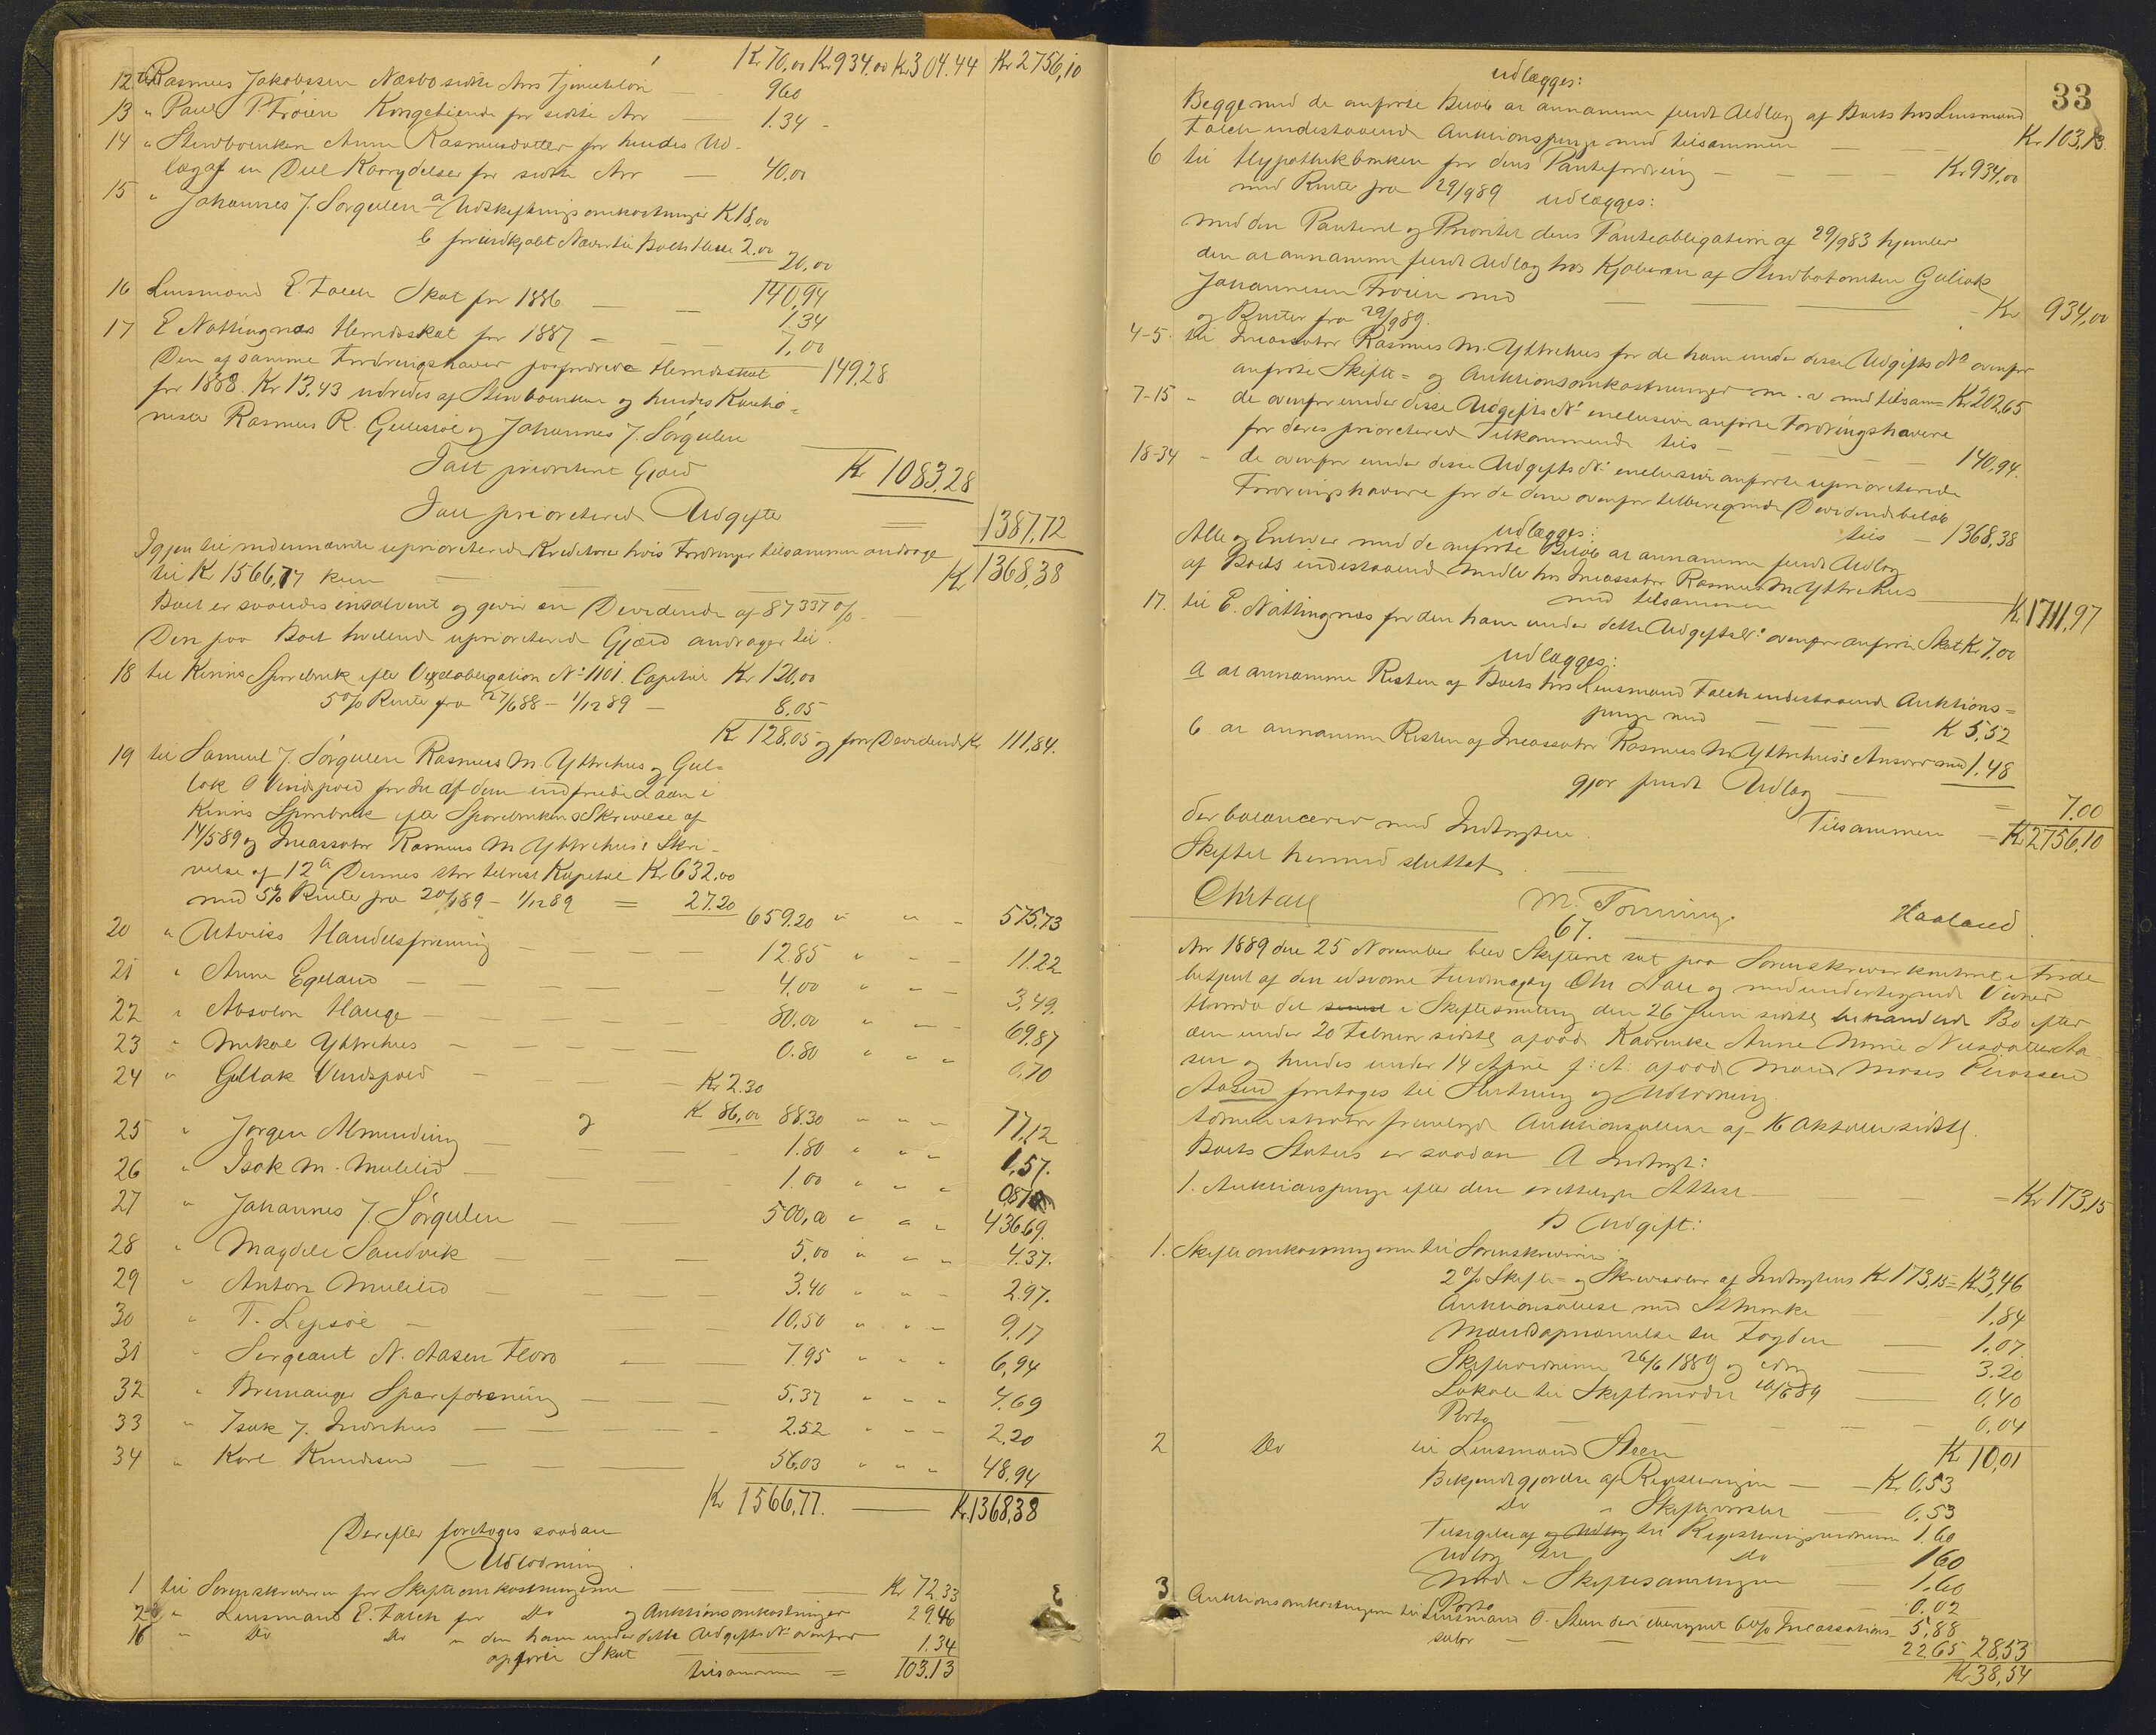 Kr 70,00 Kr 934.00 Kr 304.44 Kr 2756,10
12 til Rasmus Jakobssen Næsbø sidste Aars Tjenesteløn — 9.60
13 " Paul P. Frøien Kongetiende for sidste Aar — 1.34
14 " Stervboenken Anne Rasmusdatter for hendes Ud-
læg af en Deel Kaarydelser for sidste Aar — 40,00
15 " Johannes J. Sørgulen a Udskiftningsomkostninger Kr 18,00
b for indkjøbt Næver til Boets Huse 2.00
20,00
140,94
16 Lensmand E. Falch Skat for 1886 — 1.34
17 E Nøttingnæs Herredsskat for 1887 — 7,00
149,28
Den af samme Fordringshaver paafordrede Herredsskat
for 1888. Kr 13,43 udredes af Stervboenken og hendes Kautio-
nister Rasmus R. Gulesiøe og Johannes J. Sørgulen
Ialt prioriteret Gjæld Kr 1083,28
Ialt prioriterede Udgifter = 1387,72
Igjen til nedennævnte uprioriterede Kreditorer hvis Fordringer tilsammen andrage
til Kr 1566,77 kun — Kr 1368,38
Boet er saaledes insolvent og giver en Dividende af 87 337 %
Den paa Boet hvilende uprioriterede Gjæld andrager til:
18 til Kinns Sparebank efter Vexelobligation No 1101. Capital Kr 120,00
5% Renter fra 27/6 88 – 1/12 89 — 8,05
Kr 128,05 og for Dividende Kr 111,84.
19 til Samuel J. Sørgulen Rasmus M. Yttrehus og Gul-
lak O Vindspold for det af dem indfriede Laan i
Kinns Sparebank efter Sparebankens Skrivelse af
14/5 89 og Incassator Rasmus M Yttrehus's Skri-
velse af 12te Dennes stor tilrest Kapital Kr 632,00
med 5% Renter fra 20/1 89 – 1/12 89 = 27.20 659.20 " " — 575,73
20 " Utviks Handelsforening — 12.85 " " — 11.22
21 " Anne Egeland — 4,00 " " — 3,49.
22 " Absolon Hauge — 80,00 " " — 69,87
23 " Mikal Yttrehus — 0.80 " " " 0,70
24 " Gullak Vindspold — Kr 2.30
og Kr 86,00 88.30 " " — 77,12
25 " Jørgen Almenning — 1.80 " " — 1,57.
26 " Isak M. Mulelid — 1.00 " " " 0,87
27 " Johannes J. Sørgulen — 500,00 " " " 436,69.
28 " Magdele Sandvik — 5,00 " " — 4.37.
29 " Anton Mulelid — 3.40 " " — 2.97.
30 " T. Lepsøe — 10,50 " " — 9,17
31 " Sergeant N. Aasen Florø — 7.95 " " " 6,94
32 " Bremanger Spareforening — 5.37 " " " 4.69
33 " Isak J. Indrehus — 2.52 " " — 2,20
34 " Karl Knudsen — 56.03 " " " 48,94
Kr 1566,77. — Kr. 1368,38
Derefter foretoges saadan
Udlodning.
1 til Sorenskriveren for Skifteomkostningerne — Kr 72.33
2 " Lensmand E. Falch for Do og Auktionsomkostninger 29,46
16 " Do Do " den ham under dette Udgifts No ovenfor
opførte Skat 1.34
tilsammen = 103.13
33
udlægges:
Begge med de anførte Beløb at annamme fuldt Udlæg af Boets hos Lensmand
Falch indestaaende Auktionspenge med tilsammen — Kr 103,13.
6 til Hypothekbanken for dens Pantefordring — Kr 934,00
med Renter fra 29/9 89 udlægges:
med den Panteret og Prioritet dens Panteobligation af 29/9 83 hjemler
den at annamme fuldt Udlæg hos Kjøberen af Stervbotomten Gullak
Johannesen Frøien med — Kr 934,00
og Renter fra 29/9 89.
4-5. til Incassator Rasmus M. Yttrehus for de ham under disse Udgifts No ovenfor
anførte Skifte- og Auktionsomkostninger m. v. med tilsam= Kr 202,65
7-15 " de ovenfor under disse Udgifts No inclusive anførte Fordringshavere
for deres prioriterede Tilkommende tils — 140,94.
18-34 " de ovenfor under disse Udgifts No inclusive anførte uprioriterede
Fordringshavere for de dem ovenfor tilberegnede Dividendebeløb
tils — 1368,38
udlægges:
Alle og Enhver med de anførte Beløb at annamme fuldt Udlæg
af Boets indestaaende Midler hos Incassator Rasmus M Yttrehus
med tilsammen — Kr 1711,97
17. til E. Nøttingnæs for den ham under dette Udgifts No ovenfor anførte Skat Kr 7,00
udlægges:
a at annamme Resten af Boets hos Lensmand Falch indestaaende Auktions=
penge med — Kr 5,52
b at annamme Resten af Incassator Rasmus M Yttrehus's Ansvar med 1.48
gjør fuldt Udlæg — = 7.00
Tilsammen = Kr 2756,10
der balancerer med Indtægten.
Skiftet hermed sluttet
Chr Lall M. Tonning. Haaland
67.
Aar 1889 den 25 November blev Skifteret sat paa Sorenskriverkontoret i Førde
betjent af den edsvorne Fuldmægtig Chr Lall og medundertegnede Vidner
Hvorda det i Skiftesamling den 26 Juni sidstl. behandlede Bo efter
den under 20 Februar sidstl afgaaede Kaarenke Anne Marie Nilsdatter Aa-
sen og hendes under 14 April f: A: afgaaede Mand Moses Eliassen
Aasen foretoges til Slutning og Udlodning.
Administrator fremlagde Auktionsattest af 16 Oktober sidstl.
Boets Status er saadan A Indtægt:
1. Auktionspenge efter den vedlagte Attest — = Kr 173,15
B Udgift:
1. Skifteomkostningerne til Sorenskriveren
2% Skifte- og Skriversalær af Indtægtens Kr 173,15 = Kr 3,46
Auktionsattest med St Mærke 1.84
Mændsopnævnelse til Fogden 1.07.
Skiftevidnerne 26/6 1889 og idag 3.20
Lokale til Skiftemøder 26/6 89 0,40
Porto — 0,04
Kr 10,01
2 Do til Lensmand Steen
Bekjendtgjørelse af Registreringen — Kr 0,53
Do " Skiftevarsel 0,53
Tilsigelse af til Registreringsvidnerne 1.60
Udlæg til Do 1.60
Møde i Skiftesamlingen 1.60
Porto 0,02
5,88
3. Auktionsomkostningerne til Lensmand O. Steen deri iberegnet 6% Incassations-
salær — 22.65 28,53
Kr 38,54